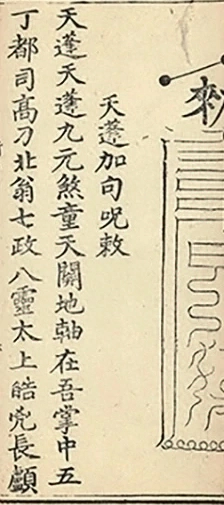 天蓬加句呪敕
天蓬天蓬九元煞童天關地軸在吾掌中五
丁都司高刀北翁七政八靈太上皓兇長顱